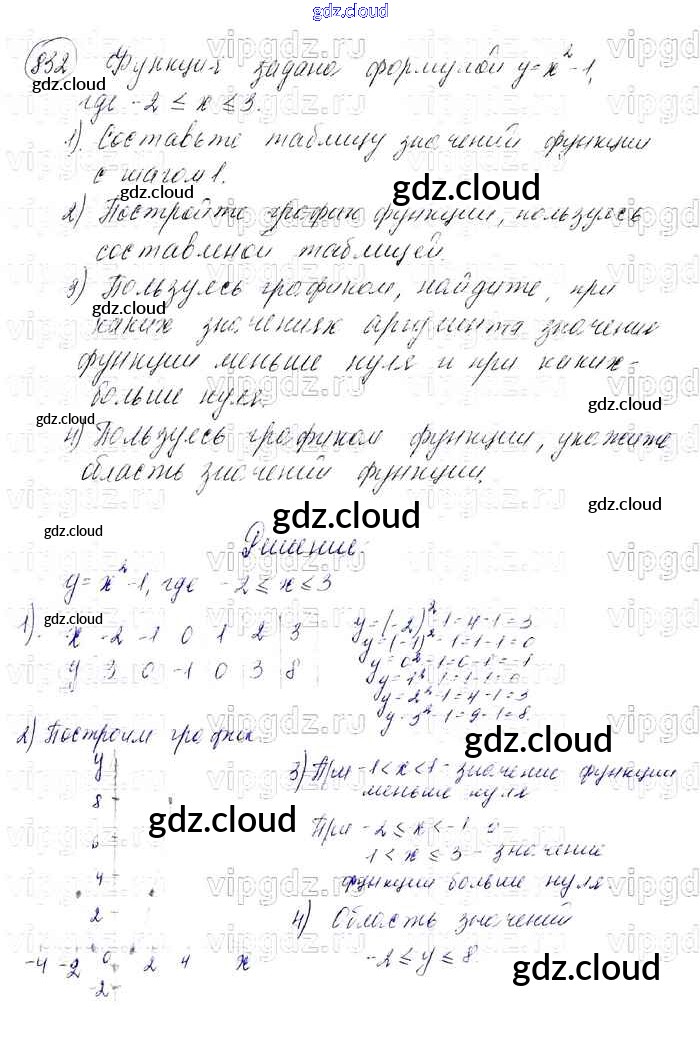 gdz.cloud
832 Функция задана формулой y=x²-1,
где -2 ≤ x ≤ 3.
1) Составьте таблицу значений функции
с шагом 1.
2) Постройте график функции, пользуясь
составленой таблицей.
3) Пользуясь графиком, найдите, при
каких значениях аргумента значения
функции меньше нуля и при каких-
больше нуля.
4) Пользуясь графиком функции, укажите
область значений функции.
Решение:
y=x²-1, где -2 ≤ x ≤ 3
1). x -2 -1 0 1 2 3
y 3 0 -1 0 3 8
y=(-2)²-1=4-1=3
y=(-1)²-1=1-1=0
y=0²-1=0-1=-1
y=1²-1=1-1=0
y=2²-1=4-1=3
y=3²-1=9-1=8.
2) Построим график.
y
8
6
4
2
-4 -2 0 2 4 x
-2
3) При -1<x<1 - значение функции
меньше нуля
При -2≤x<-1 и
1<x≤3 - значение
функции больше нуля
4) Область значений
-2≤y≤8.
gdz.cloud
gdz.cloud
gdz.cloud
gdz.cloud
gdz.cloud
gdz.cloud
gdz.cloud
gdz.cloud
gdz.cloud
gdz.cloud
gdz.cloud
gdz.cloud
gdz.cloud
vipgdz.ru